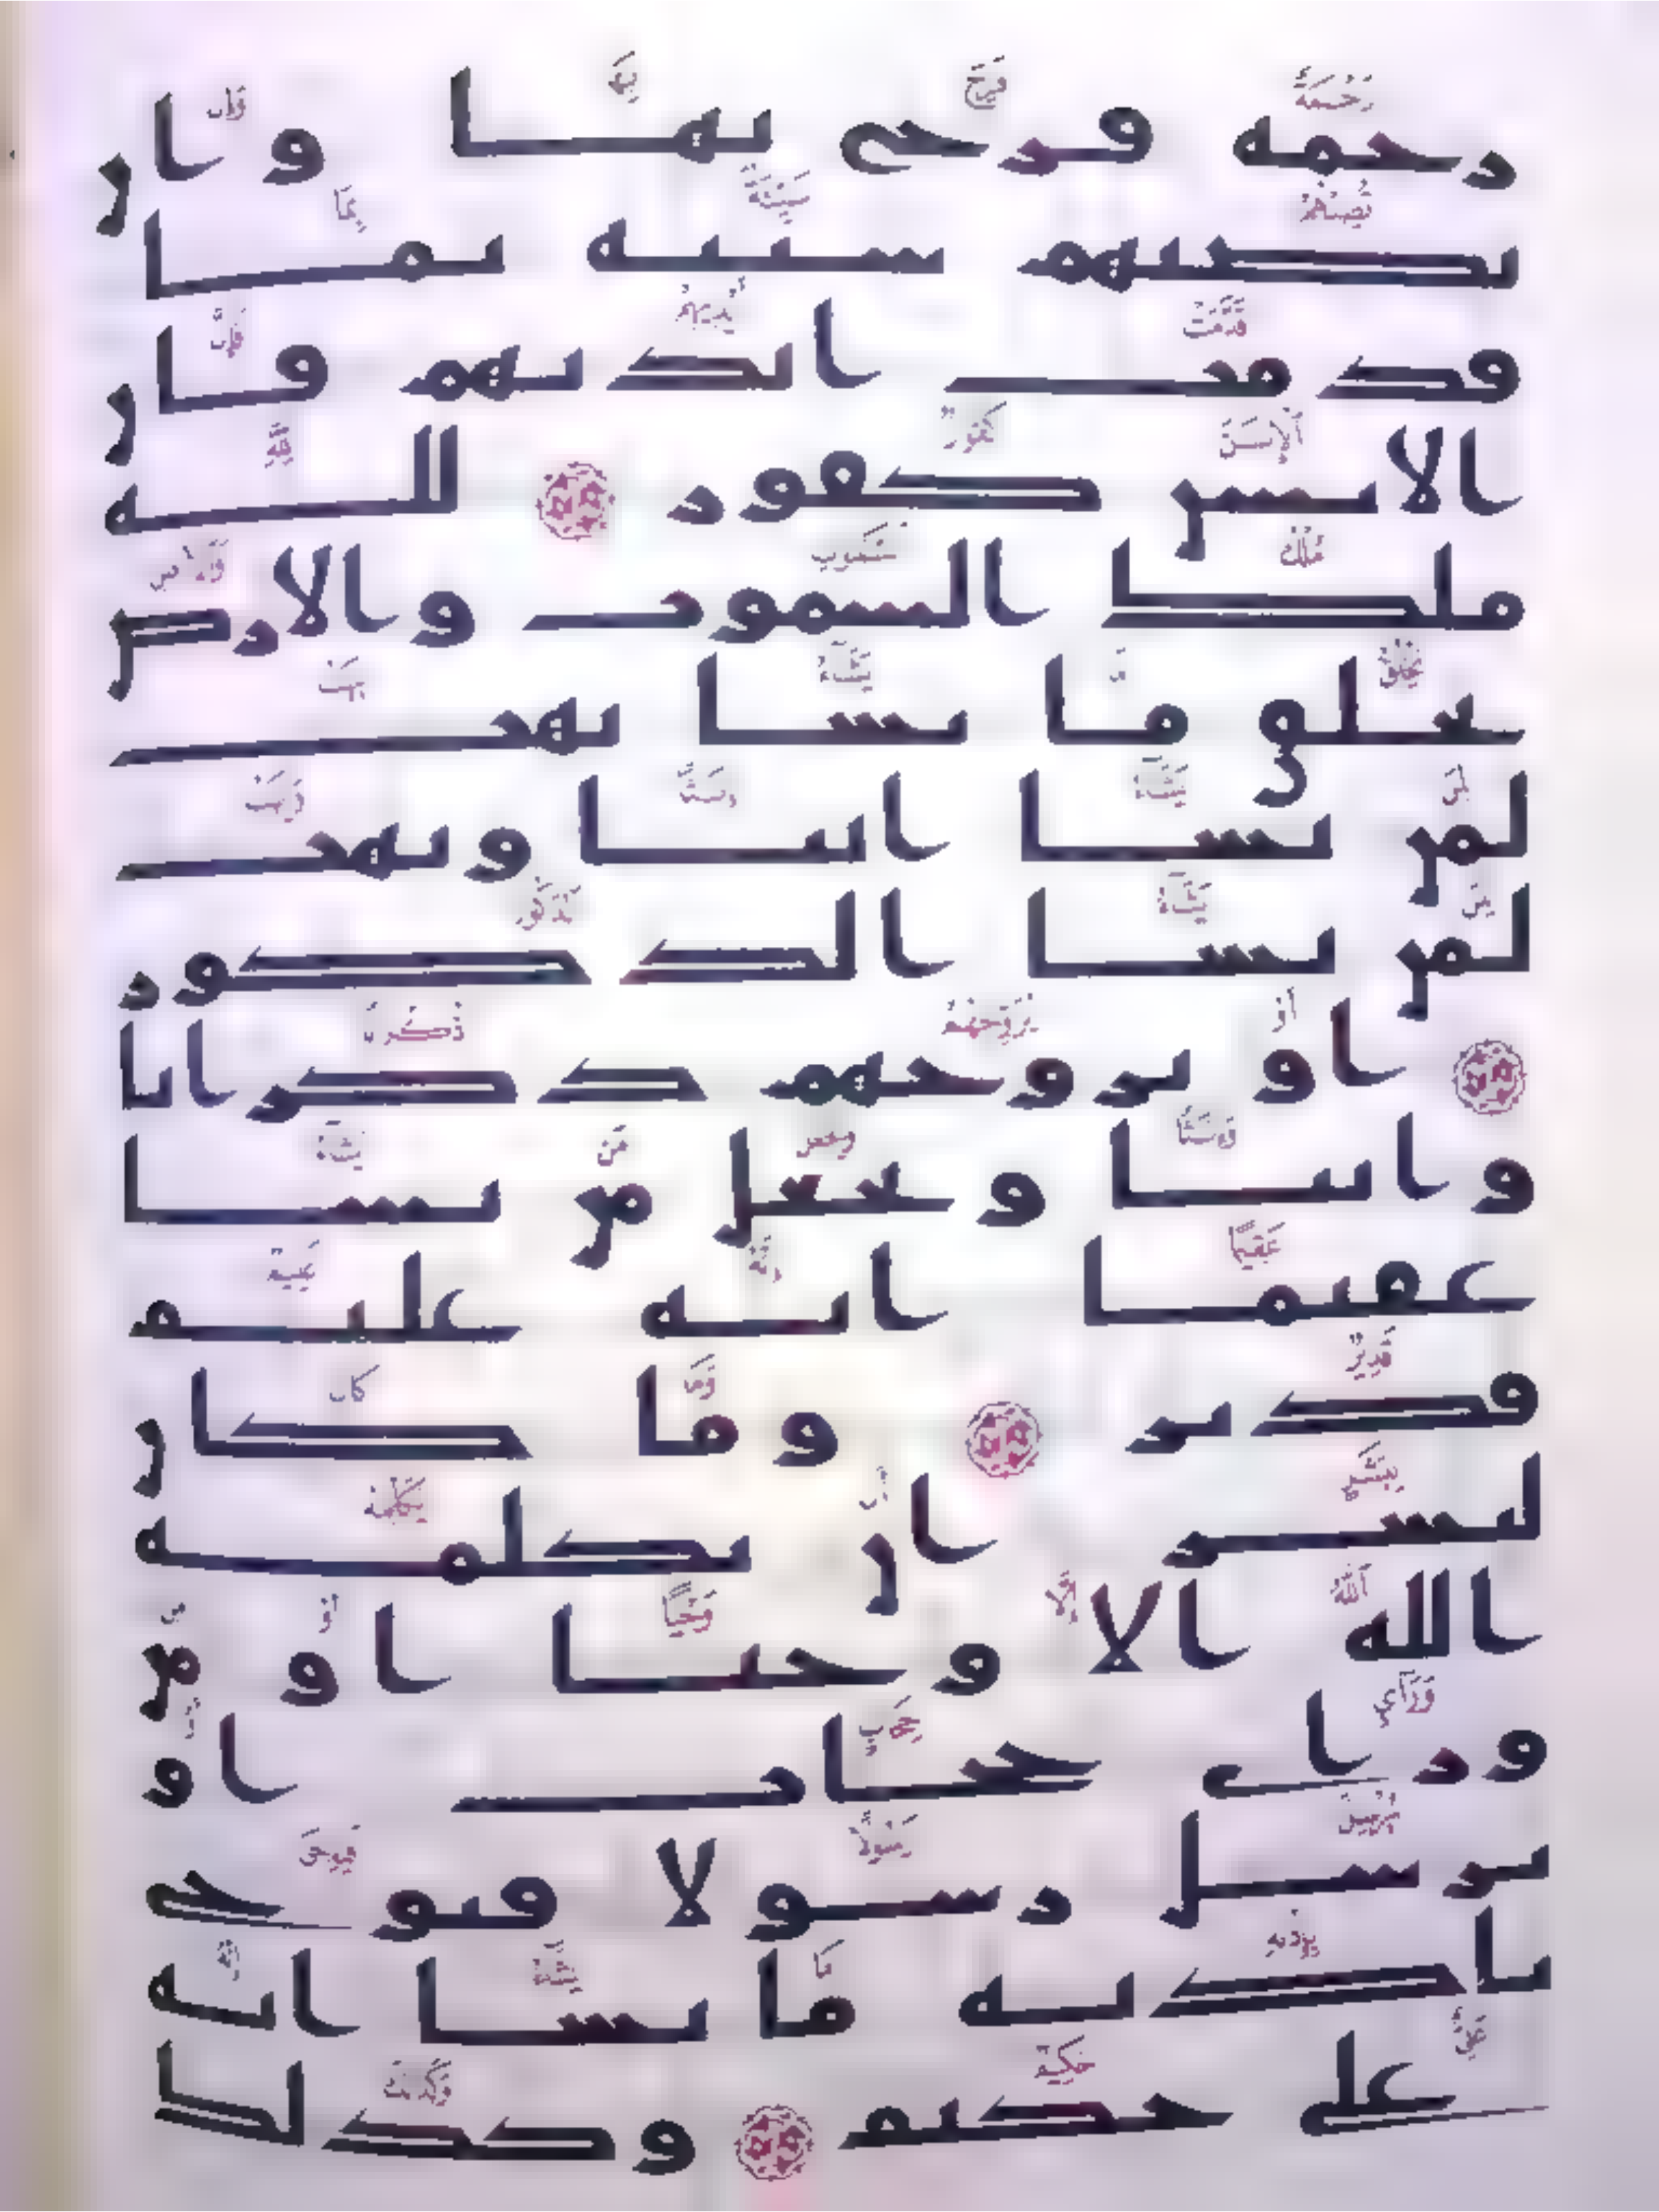 رحمة فرح بها وان
تصبهم سيئة بما
قدمت ايديهم فان
الانسن كفور لله
ملك السموت والارض
يخلق ما يشا يهب
لمن يشا انثا ويهب
لمن يشا الذكور
او يزوجهم ذكرانا
وانثا ويجعل من يشا
عقيما انه عليم
قدير وما كان
لبشر ان يكلمه
الله الا وحيا او من
وراي حجاب او
يرسل رسولا فيوحي
باذنه ما يشا انه
علي حكيم وكذلك